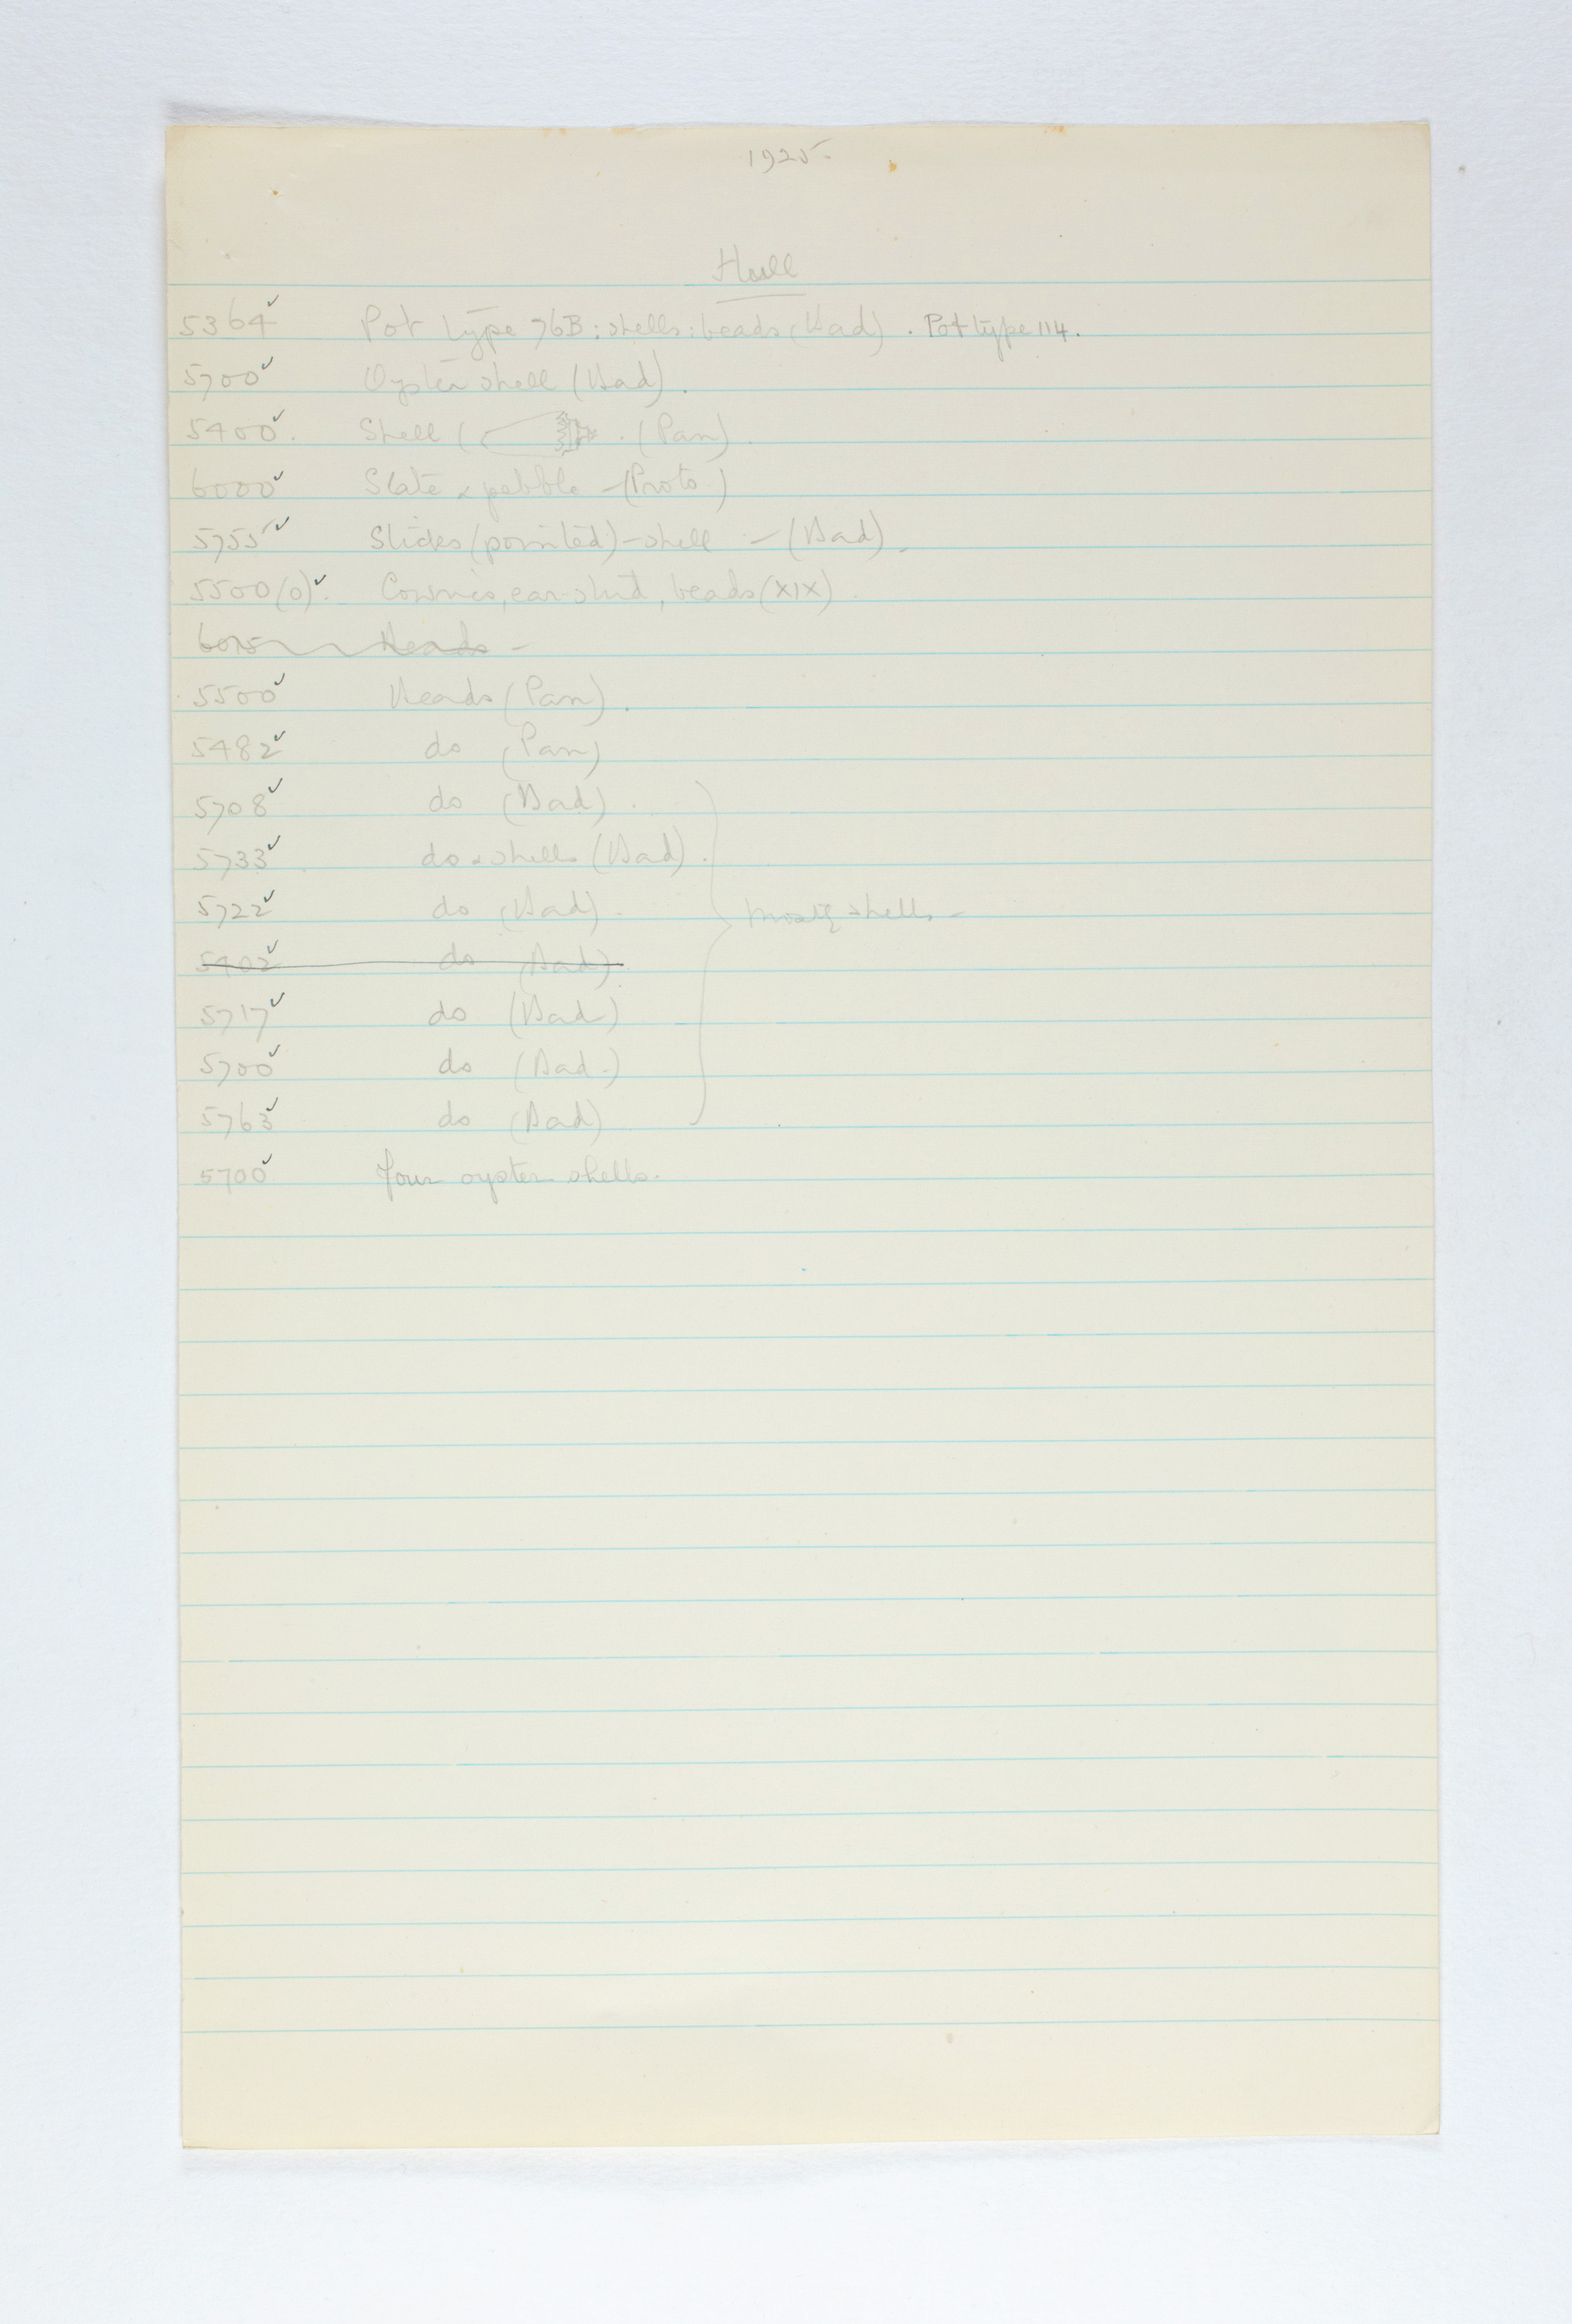 1925.
Hull
5364 ✓ Pot type 76B: shells: beads (Bad). Pot type 114.
5700 ✓ Oyster shell (Bad).
5400 ✓. Shell ( . (Pan).
6000 ✓ Slate & pebble - (Proto.)
5755 ✓ Slides (pointed) - shell - (Bad).
5500 (0) ✓. Cowries, ear-stud, beads (XIX).
6015 Beads -
5500 ✓ Beads (Pan).
5482 ✓ do (Pan)
5708 ✓ do (Bad).
5733 ✓. do & shells (Bad).
5722 ✓ do (Bad). mostly shells -
5402 ✓ do (Bad).
5717 ✓ do (Bad)
5700 ✓ do (Bad.)
5763 ✓ do (Bad)
5700 ✓ Four oyster shells.